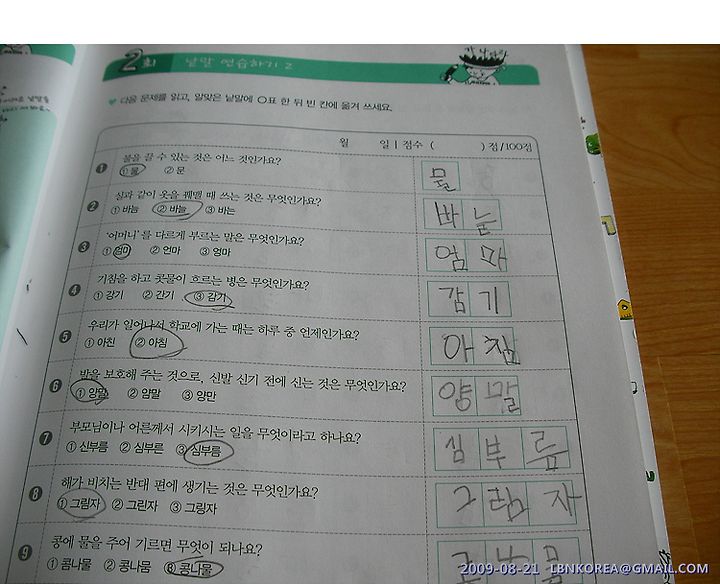 2회 낱말 연습하기 2
다음 문제를 읽고, 알맞은 낱말에 ○표 한 뒤 빈 칸에 옮겨 쓰세요.
월 일 | 점수 ( )점/100점
1 불을 끌 수 있는 것은 어느 것인가요?
① 물 ② 문
물
2 실과 같이 옷을 꿰맬 때 쓰는 것은 무엇인가요?
① 바늠 ② 바늘 ③ 바는
바늘
3 '어머니'를 다르게 부르는 말은 무엇인가요?
① 엄마 ② 언마 ③ 엉마
엄마
4 기침을 하고 콧물이 흐르는 병은 무엇인가요?
① 강기 ② 간기 ③ 감기
감기
5 우리가 일어나서 학교에 가는 때는 하루 중 언제인가요?
① 아친 ② 아침
아침
6 발을 보호해 주는 것으로, 신발 신기 전에 신는 것은 무엇인가요?
① 양말 ② 얌말 ③ 양만
양말
7 부모님이나 어른께서 시키시는 일을 무엇이라고 하나요?
① 신부름 ② 심부른 ③ 심부름
심부름
8 해가 비치는 반대 편에 생기는 것은 무엇인가요?
① 그림자 ② 그린자 ③ 그링자
그림자
9 콩에 물을 주어 기르면 무엇이 되나요?
① 콤나물 ② 콩나뭄 ③ 콩나물
2009-08-21 LBNKOREA@GMAIL.COM